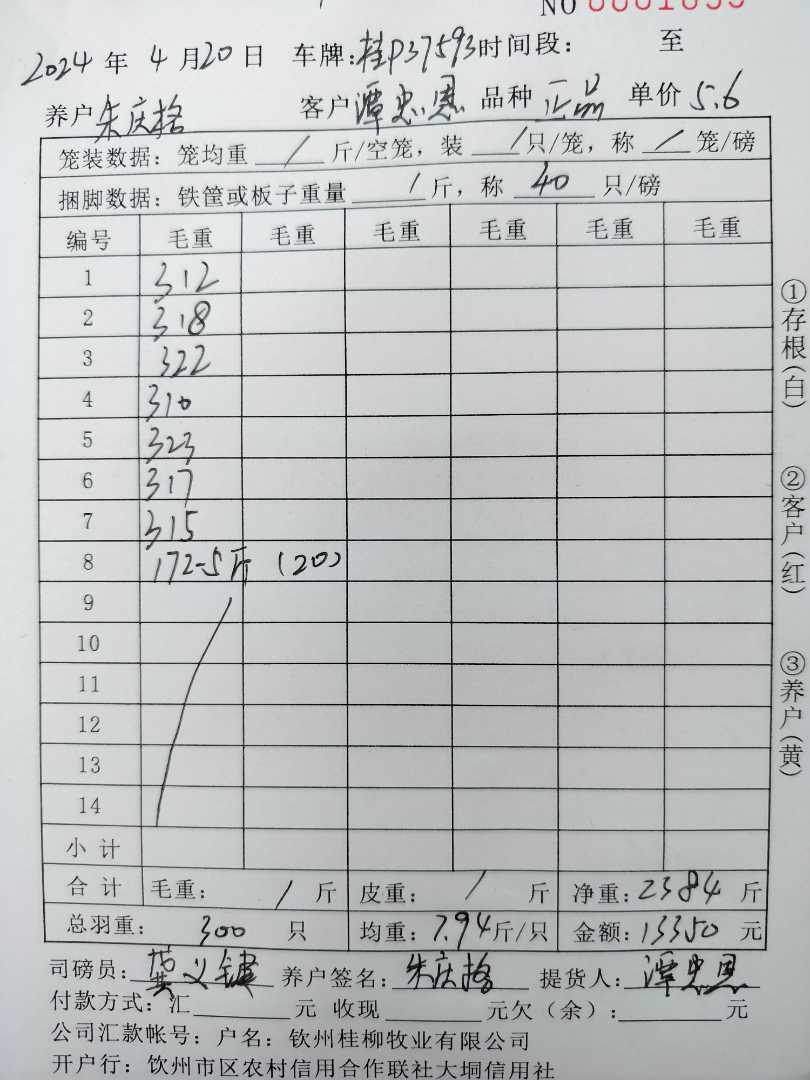 NO 0001859
2024 年 4 月 20 日 车牌：桂P37593 时间段： 至
养户 朱庆格 客户 潭忠恩 品种 正品 单价 5.6
笼装数据：笼均重 / 斤/空笼，装 / 只/笼，称 / 笼/磅
捆脚数据：铁筐或板子重量 / 斤，称 40 只/磅
编号 毛重 毛重 毛重 毛重 毛重 毛重
1 312
2 318
3 322
4 310
5 323
6 317
7 315
8 172-5斤 (20)
9
10
11
12
13
14
小 计
合 计 毛重： / 斤 皮重： / 斤 净重：2384 斤
总羽重： 300 只 均重：7.94 斤/只 金额：13350 元
司磅员：黄义键 养户签名：朱庆格 提货人：潭忠恩
付款方式：汇 元 收现 元欠（余）： 元
公司汇款帐号：户名：钦州桂柳牧业有限公司
开户行：钦州市区农村信用合作联社大垌信用社
①存根(白)
②客户(红)
③养户(黄)